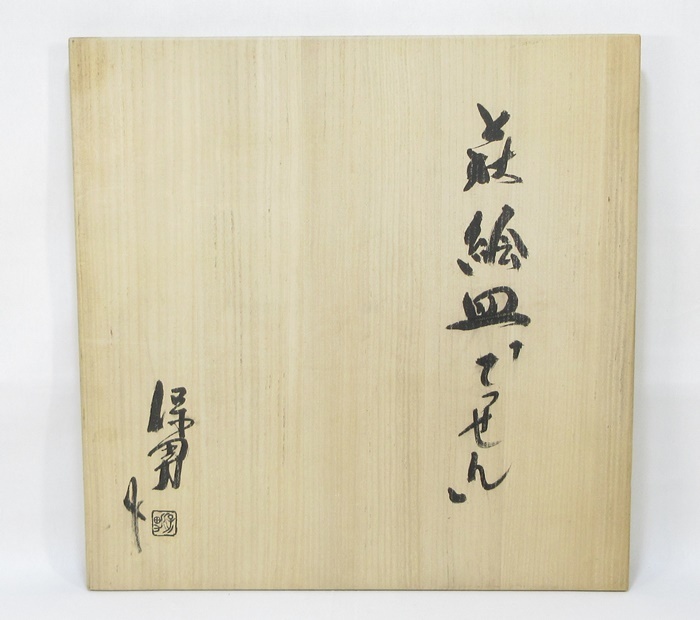 萩絵皿「てっせん」
保男
作